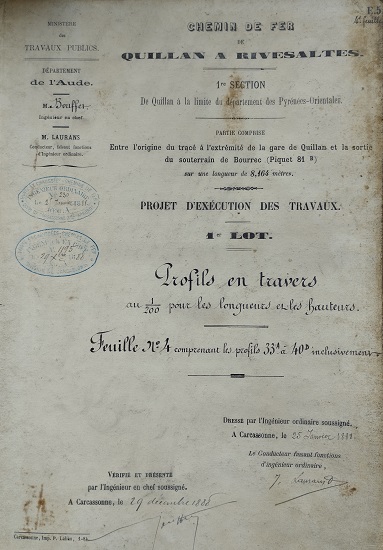 E.5
4e feuille
MINISTÈRE
des
TRAVAUX PUBLICS.
DÉPARTEMENT
de l'Aude.
M. Bouffet
Ingénieur en chef
M. LAURANS
Conducteur, faisant fonctions
d'Ingénieur ordinaire.
CHEMIN DE FER
DE
QUILLAN A RIVESALTES.
1re SECTION
De Quillan à la limite du département des Pyrénées-Orientales.
PARTIE COMPRISE
Entre l'origine du tracé à l'extrémité de la gare de Quillan et la sortie
du souterrain de Bourrec (Piquet 81 B)
sur une longueur de 8,464 mètres.
PROJET D'EXÉCUTION DES TRAVAUX.
1er LOT.
Profils en travers
au 1/200 pour les longueurs et les hauteurs.
Feuille No 4 comprenant les profils 33A à 40D inclusivement
DRESSÉ par l'Ingénieur ordinaire soussigné.
A Carcassonne, le 25 Janvier
Le Conducteur faisant fonctions
d'ingénieur ordinaire,
J. Laurans
VÉRIFIÉ ET PRÉSENTÉ
par l'Ingénieur en chef soussigné.
A Carcassonne, le 29 décembre
Carcassonne, Imp. P. Labau,